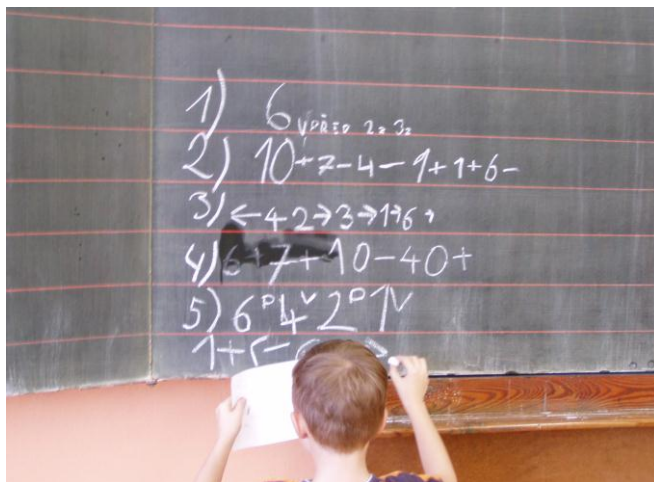 1) 6 VPŘED 2x 3x
2) 10+7-4-9+1+6-
3) ←42→3→1→6→
4) 6+7+10-40+
5) 6P4V2P1V
1+5-